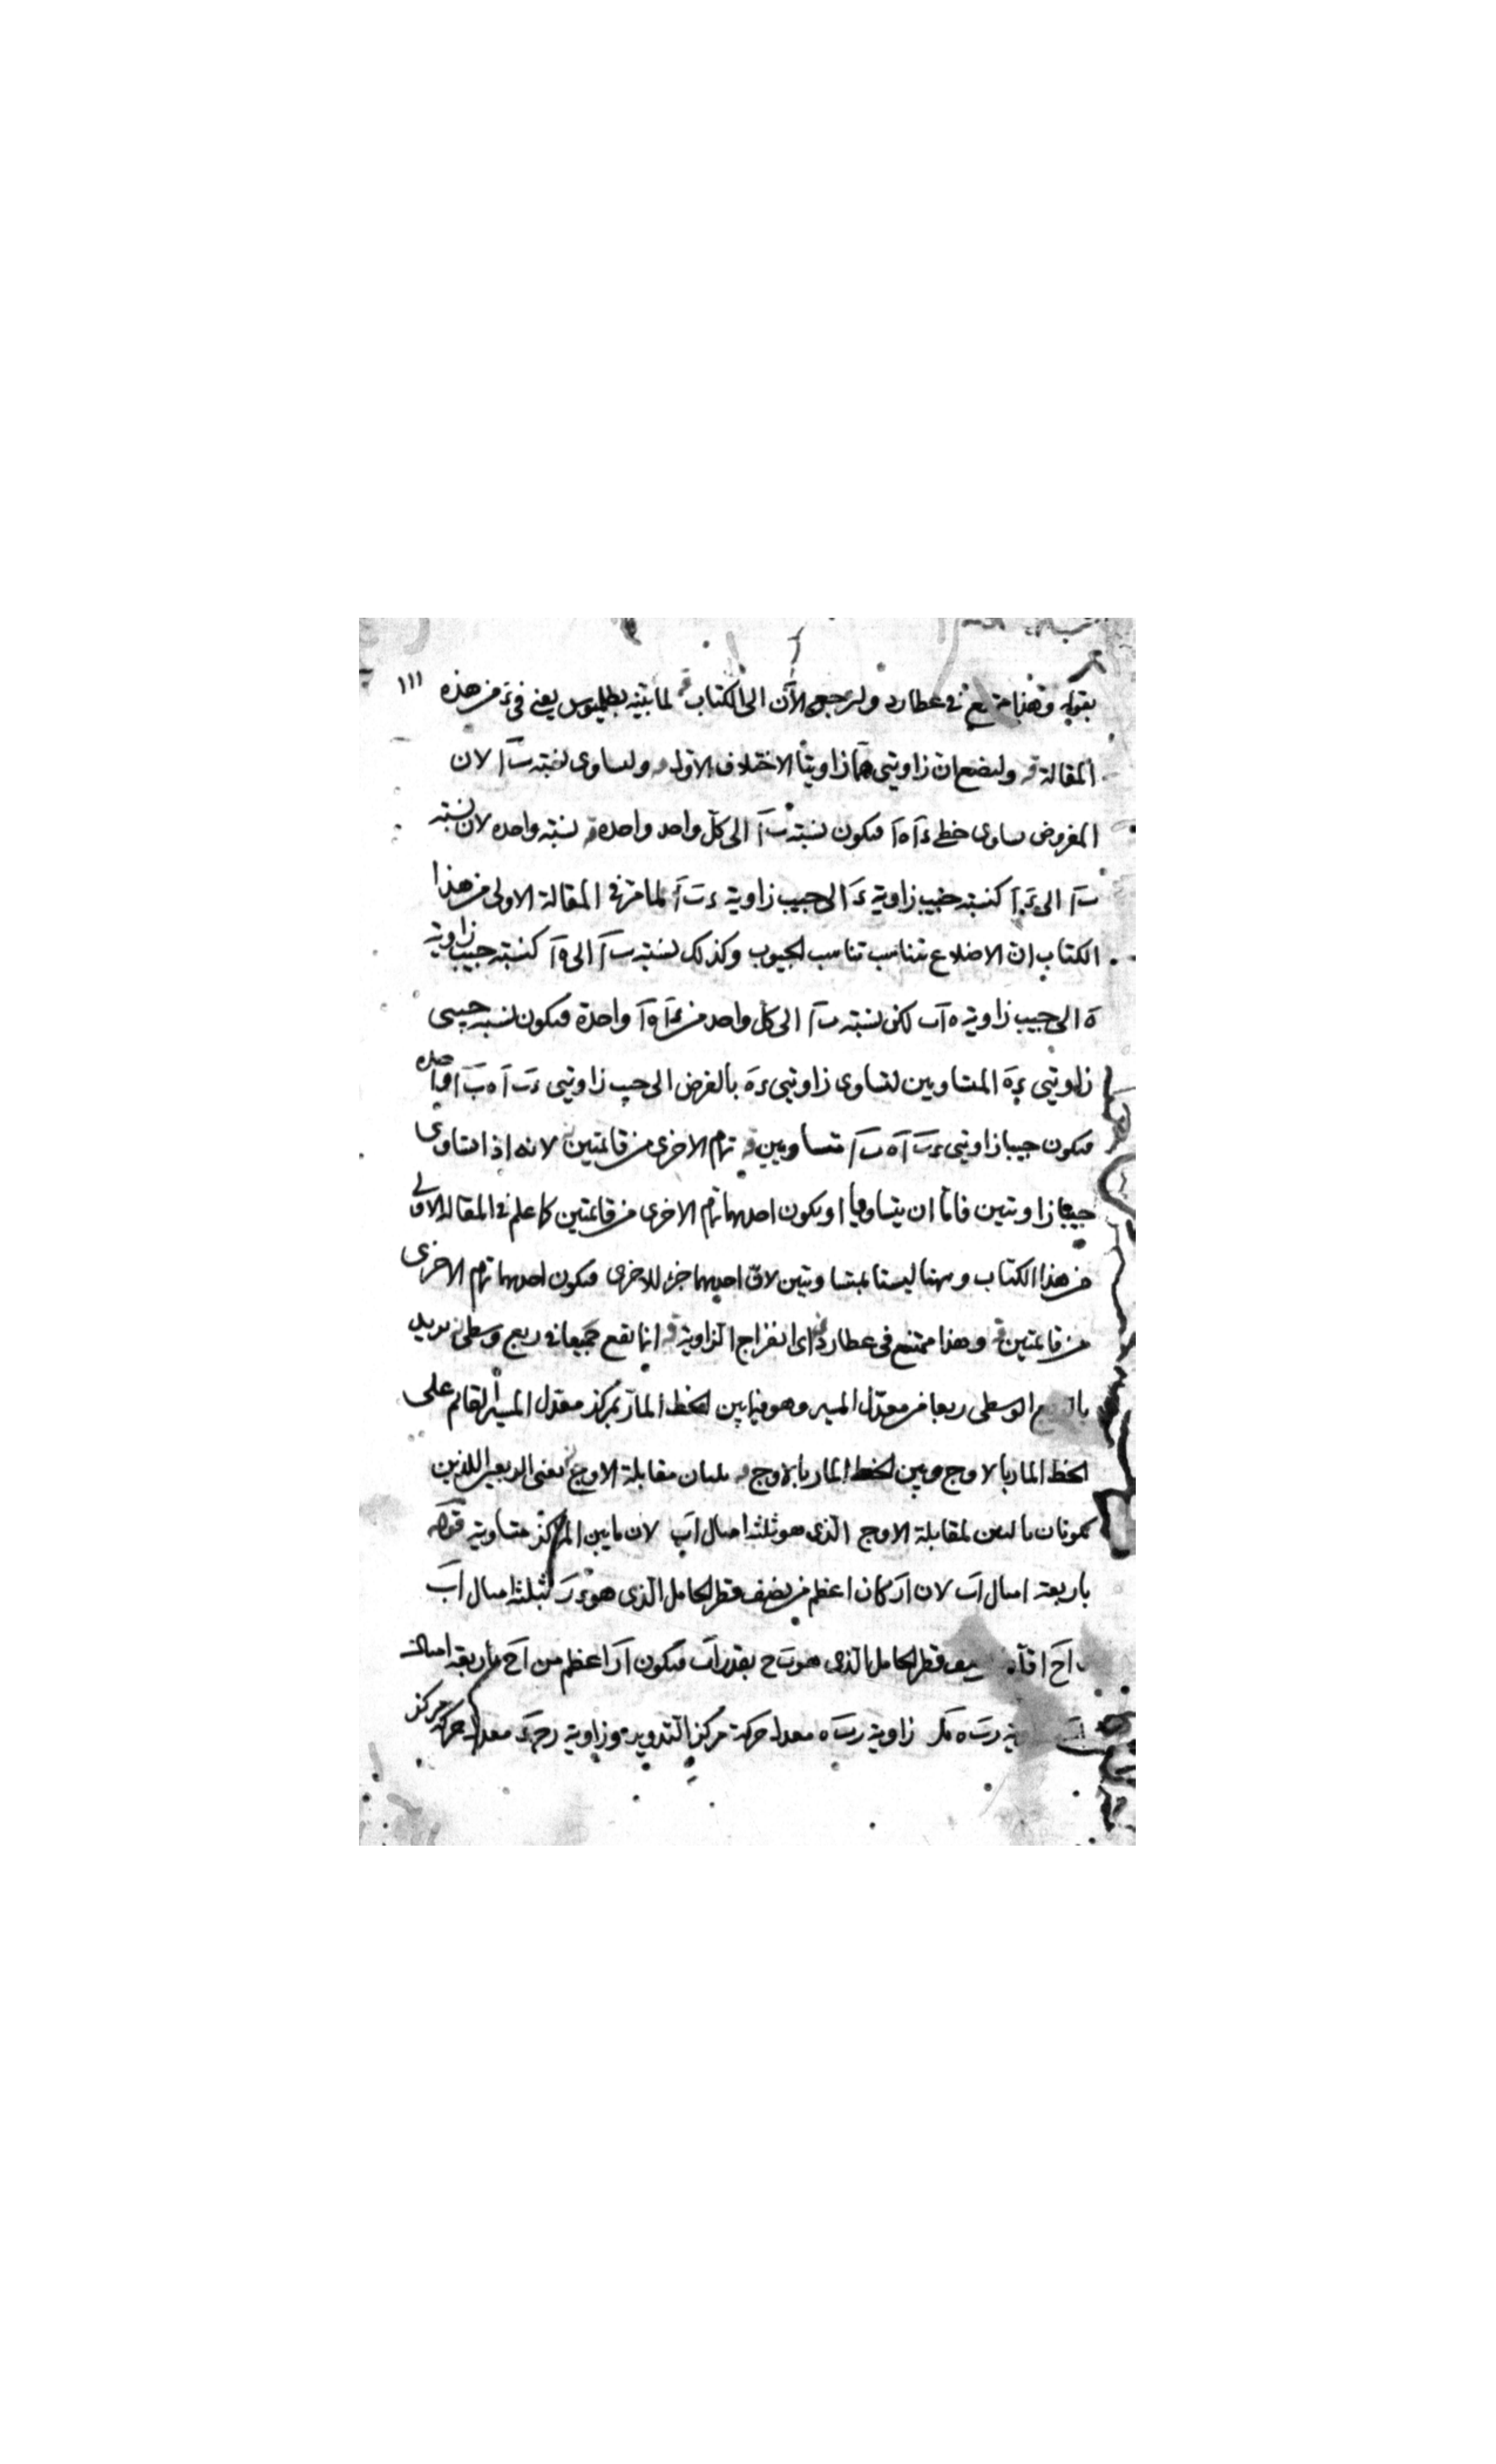 بقوله وهذا ممتنع في عطارد ولنرجع الآن الى الكتاب لما بيّنه بطلميوس يعنى في ءَ من هذه ١١١
المقالة ولنضع ان زاويتى هما زاويتا الاختلاف الاول ولتساوى نسبة بَ آ لان
المفروض تساوى خطى ءَ آ هَ آ فيكون نسبة بَ آ الى كلّ واحد واحدة نسبة واحده لان نسبة
بَ آ الى ءَ آ كنسبة جيب زاوية ءَ الى جيب زاوية ءَ بَ آ لما مرّ في المقالة الاولى من هذا
الكتاب ان الاضلاع تتناسب تناسب الجيوب وكذلك نسبة بَ آ الى هَ آ كنسبة جيب زاوية
هَ الى جيب زاوية هَ آ بَ لكن نسبة بَ آ الى كل واحد من ءَ آ هَ آ واحدة فيكون نسبة جيبى
زاويتى ءَ هَ المتساويين لتساوى زاويتى ءَ هَ بالفرض الى جيب زاويتى ءَ بَ آ هَ بَ آ واحده
فيكون جيبا زاويتى ءَ بَ آ هَ بَ آ متساويين تمام الاخرى من قائمتين لانه اذا تساوى
جيبا زاويتين فامّا ان يتساويا او يكون احدهما تمام الاخرى من قائمتين كما علم في المقالة الاولى
من هذا الكتاب وههنا ليستا بمتساويتين لانّ احديهما جزء للاخرى فيكون احدهما تمام الاخرى
من قائمتين وهذا ممتنع في عطارد اى انفراج الزاوية انما تقع جميعا في ربع وسطى يريد
الوسطى ربعا من معدّل المسير وهو فيما بين الخط المارّ بمركز معدل المسير القائم على
الخط المار بالاوج وبين الخط المار بالاوج يليان مقابلة الاوج يعنى الربعين اللذين
يكونان تاليين لمقابلة الاوج الذى هو ثلثة امثال اَبَ لان ما بين المراكز متساوية قوله
باربعة امثال اَبَ لان اَرَ كان اعظم من نصف قطر الحامل الذى هو ءَ رَ بثلثة امثال اَبَ
اَحَ نصف قطر الحامل الذى هو بَ حَ بقدر اَبَ فيكون اَرَ اعظم من اَحَ باربعة امثال
زاوية رَ بَ هَ معدل حركة مركز التدوير وزاوية رَ حَ ءَ معدل حركة مركز